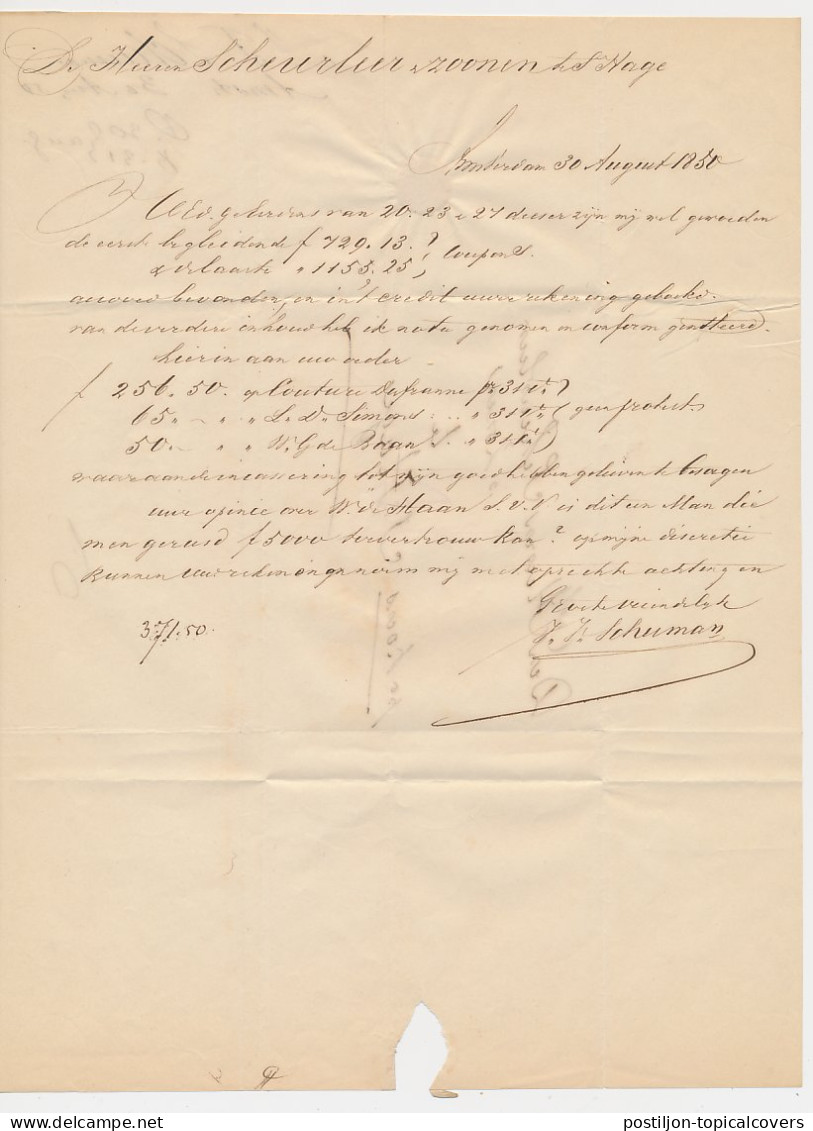 De Heeren Scheurleer & zoonen te S'Hage
Amsterdam 30 August 1850
UEd. geheerens van 20. 23 & 27 deeser zijn mij wel geworden
de eerste begeleidende f 729.13.
& de laatste " 1155.25, Coupons.
accoord bevonden, en in't credit uwer rekening geboekt.
van de verdere inhoud heb ik nota genomen en conform genoteerd.
hierin aan uw order
f 256.50. op Couture Dufranne pr 31
65 " " L. D. Simons " " 31 geen protest
50 " " W. G. de Baan S. " 31
waaraan de incassering tot mijn goed hebben gelieven te besorgen
uw opinie over W. de Haan S.V.V. is dit een Man die
men gerust f 5000 toevertrouw kan? op mijne discretie
kunnen UW rekenen en noem mij met oprechte achting en
Groete vriendelijk
J. H. Schuman
371.50.
postiljon-topicalcovers